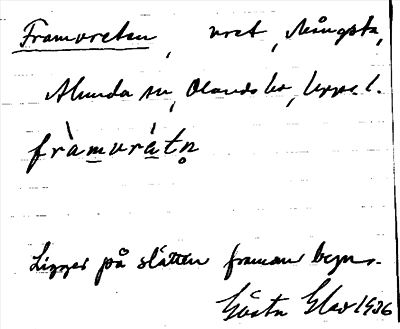 Framvreten, vret, Mångsta,
Alunda sn, Olands hd, Upps. l.
fràmvrátn̥
Ligger på slätten framan byn.
Gösta Elw 1936